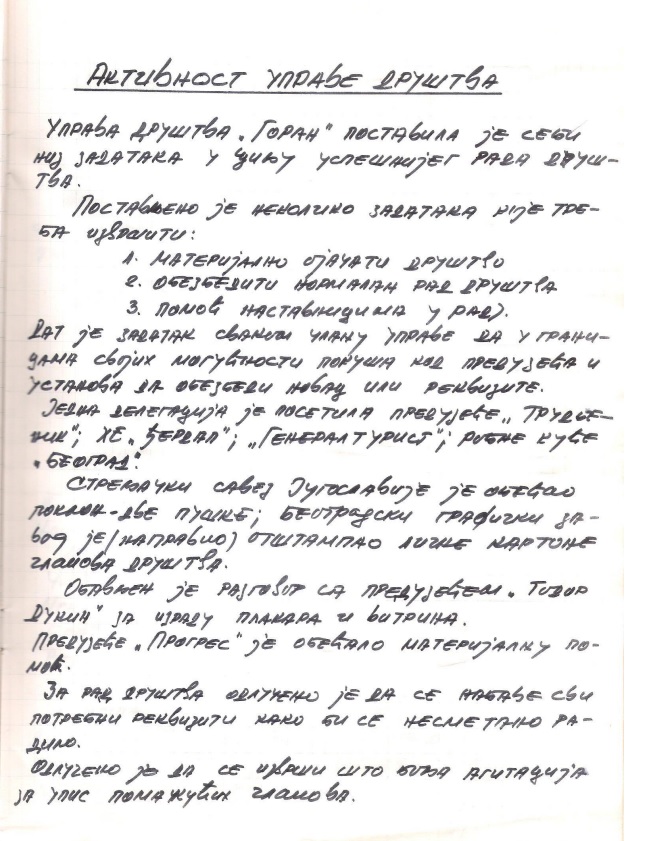 АКТИВНОСТ УПРАВЕ ДРУШТВА
УПРАВА ДРУШТВА „ГОРАН" ПОСТАВИЛА ЈЕ СЕБИ
НИЗ ЗАДАТАКА У ЦИЉУ УСПЕШНИЈЕГ РАДА ДРУШ-
ТВА.
ПОСТАВЉЕНО ЈЕ НЕКОЛИКО ЗАДАТАКА КОЈЕ ТРЕ-
БА ИЗВРШИТИ:
1. МАТЕРИЈАЛНО ОЈАЧАТИ ДРУШТВО
2. ОБЕЗБЕДИТИ НОРМАЛАН РАД ДРУШТВА
3. ПОМОЋ НАСТАВНИЦИМА У РАДУ.
ДАТ ЈЕ ЗАДАТАК СВАКОМ ЧЛАНУ УПРАВЕ ДА У ГРАНИ-
ЦАМА СВОЈИХ МОГУЋНОСТИ ПОКУША КОД ПРЕДУЗЕЋА И
УСТАНОВА ДА ОБЕЗБЕДИ НОВАЦ ИЛИ РЕКВИЗИТЕ.
ЈЕДНА ДЕЛЕГАЦИЈА ЈЕ ПОСЕТИЛА ПРЕДУЗЕЋЕ „ТРУДБЕ-
НИК"; ХЕ „ЂЕРДАП"; „ГЕНЕРАЛТУРИСТ"; РОБНЕ КУЋЕ
„БЕОГРАД".
СТРЕЉАЧКИ САВЕЗ ЈУГОСЛАВИЈЕ ЈЕ ОБЕЋАО
ПОКЛОН-ДВЕ ПУШКЕ; БЕОГРАДСКИ ГРАФИЧКИ ЗА-
ВОД ЈЕ (НАПРАВИО) ОТШТАМПАО ЛИЧНЕ КАРТОНЕ
ЧЛАНОВА ДРУШТВА.
ОБАВЉЕН ЈЕ РАЗГОВОР СА ПРЕДУЗЕЋЕМ „ТОДОР
ДУКИН" ЗА ИЗРАДУ ПЛАКАРА И ВИТРИНА.
ПРЕДУЗЕЋЕ „ПРОГРЕС" ЈЕ ОБЕЋАЛО МАТЕРИЈАЛНУ ПО-
МОЋ.
ЗА РАД ДРУШТВА ОДЛУЧЕНО ЈЕ ДА СЕ НАБАВЕ СВИ
ПОТРЕБНИ РЕКВИЗИТИ КАКО БИ СЕ НЕСМЕТАНО РА-
ДИЛО.
ОДЛУЧЕНО ЈЕ ДА СЕ ИЗВРШИ ШТО БОЉА АГИТАЦИЈА
ЗА УПИС ПОМАЖУЋИХ ЧЛАНОВА.